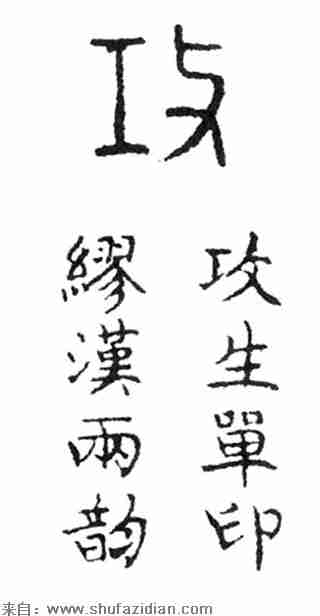 攻
攻生單印
繆漢兩韵
来自：www.shufazidian.com